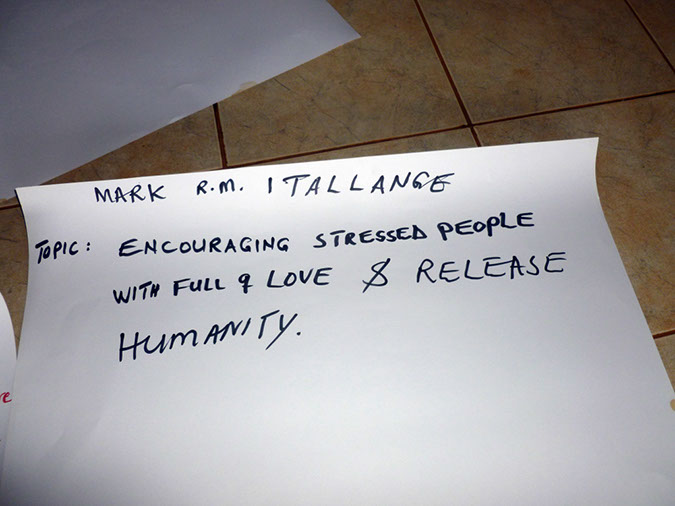 MARK R.M. ITALLANGE
TOPIC: ENCOURAGING STRESSED PEOPLE
WITH FULL 9 LOVE & RELEASE
HUMANITY.
re